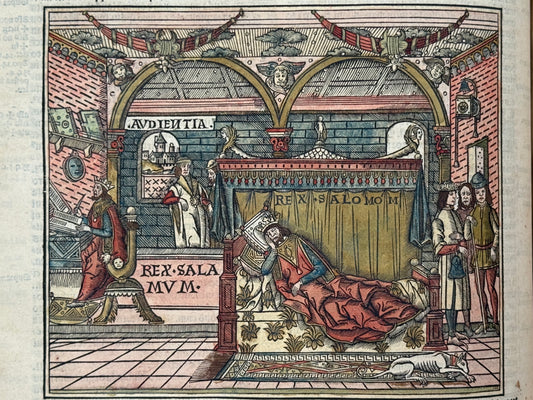 AVDIENTIA.
REX·SALOMOM
REX·SALA
MVM·